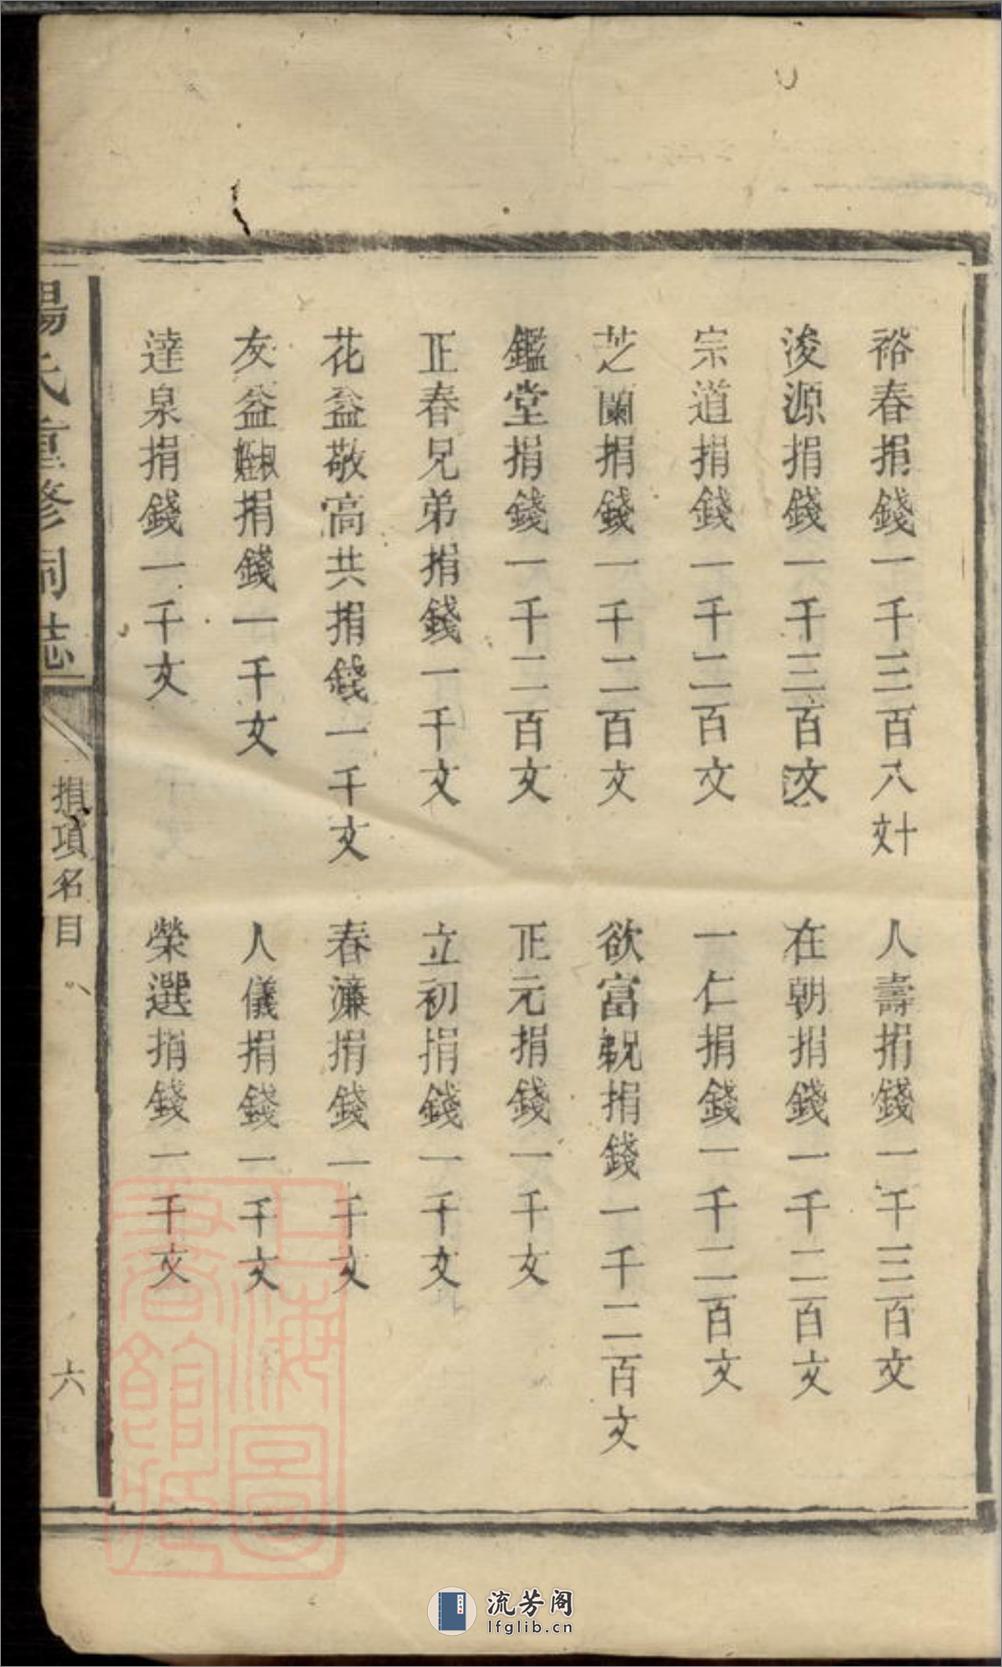 裕春捐錢一千三百八十文
人壽捐錢一千三百文
浚源捐錢一千三百文
在朝捐錢一千二百文
宗道捐錢一千二百文
一仁捐錢一千二百文
芝蘭捐錢一千二百文
欲富捐錢一千二百文
鑑堂捐錢一千二百文
正元捐錢一千文
正春兄弟捐錢一千文
立初捐錢一千文
花益敬高共捐錢一千文
春濂捐錢一千文
友益捐錢一千文
人儀捐錢一千文
達泉捐錢一千文
榮選捐錢一千文
楊氏重修祠誌
捐項名目
六
上海圖書館藏
流芳阁
lfglib.cn